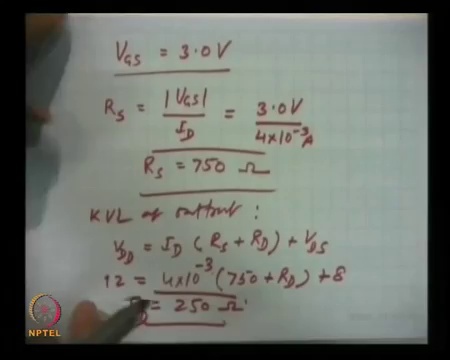 V_GS = 3.0V
R_S = |V_GS| / I_D = 3.0V / 4×10^-3 A
R_S = 750 Ω
KVL at output :
V_DD = I_D (R_S + R_D) + V_DS
12 = 4×10^-3 (750 + R_D) + 8
= 250 Ω
NPTEL